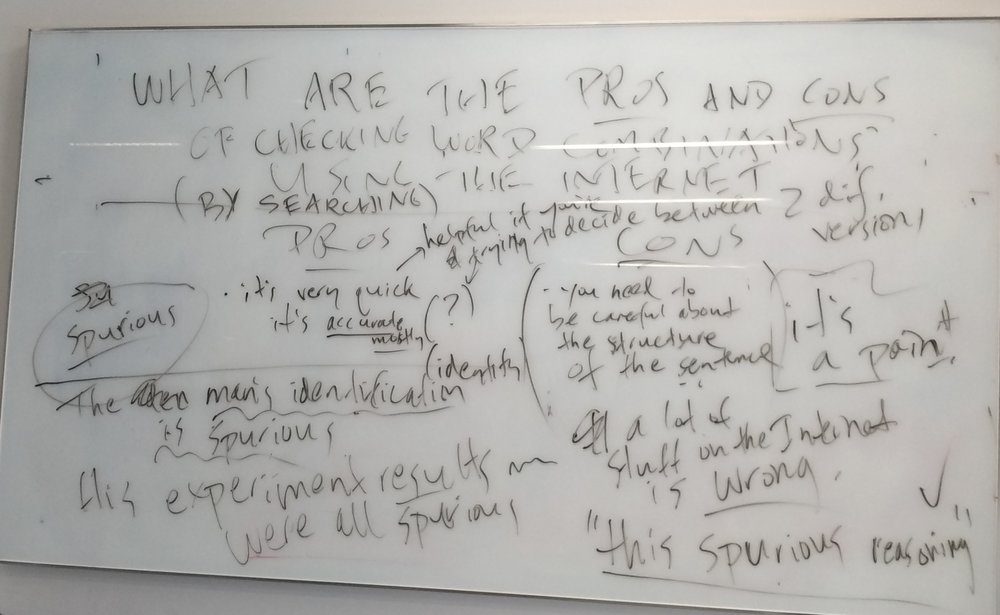 WHAT ARE THE PROS AND CONS
OF CHECKING WORD COMBINATIONS
USING THE INTERNET
(BY SEARCHING)
helpful if you're
trying to decide between 2 dif.
versions
PROS
CONS
spurious
. it's very quick
it's accurate (?)
mostly
(identity)
you need to
be careful about
the structure
of the sentence
it's
a pain
The man's identification
is spurious
a lot of
stuff on the Internet
is wrong.
His experiment results
were all spurious
"this spurious reasoning"